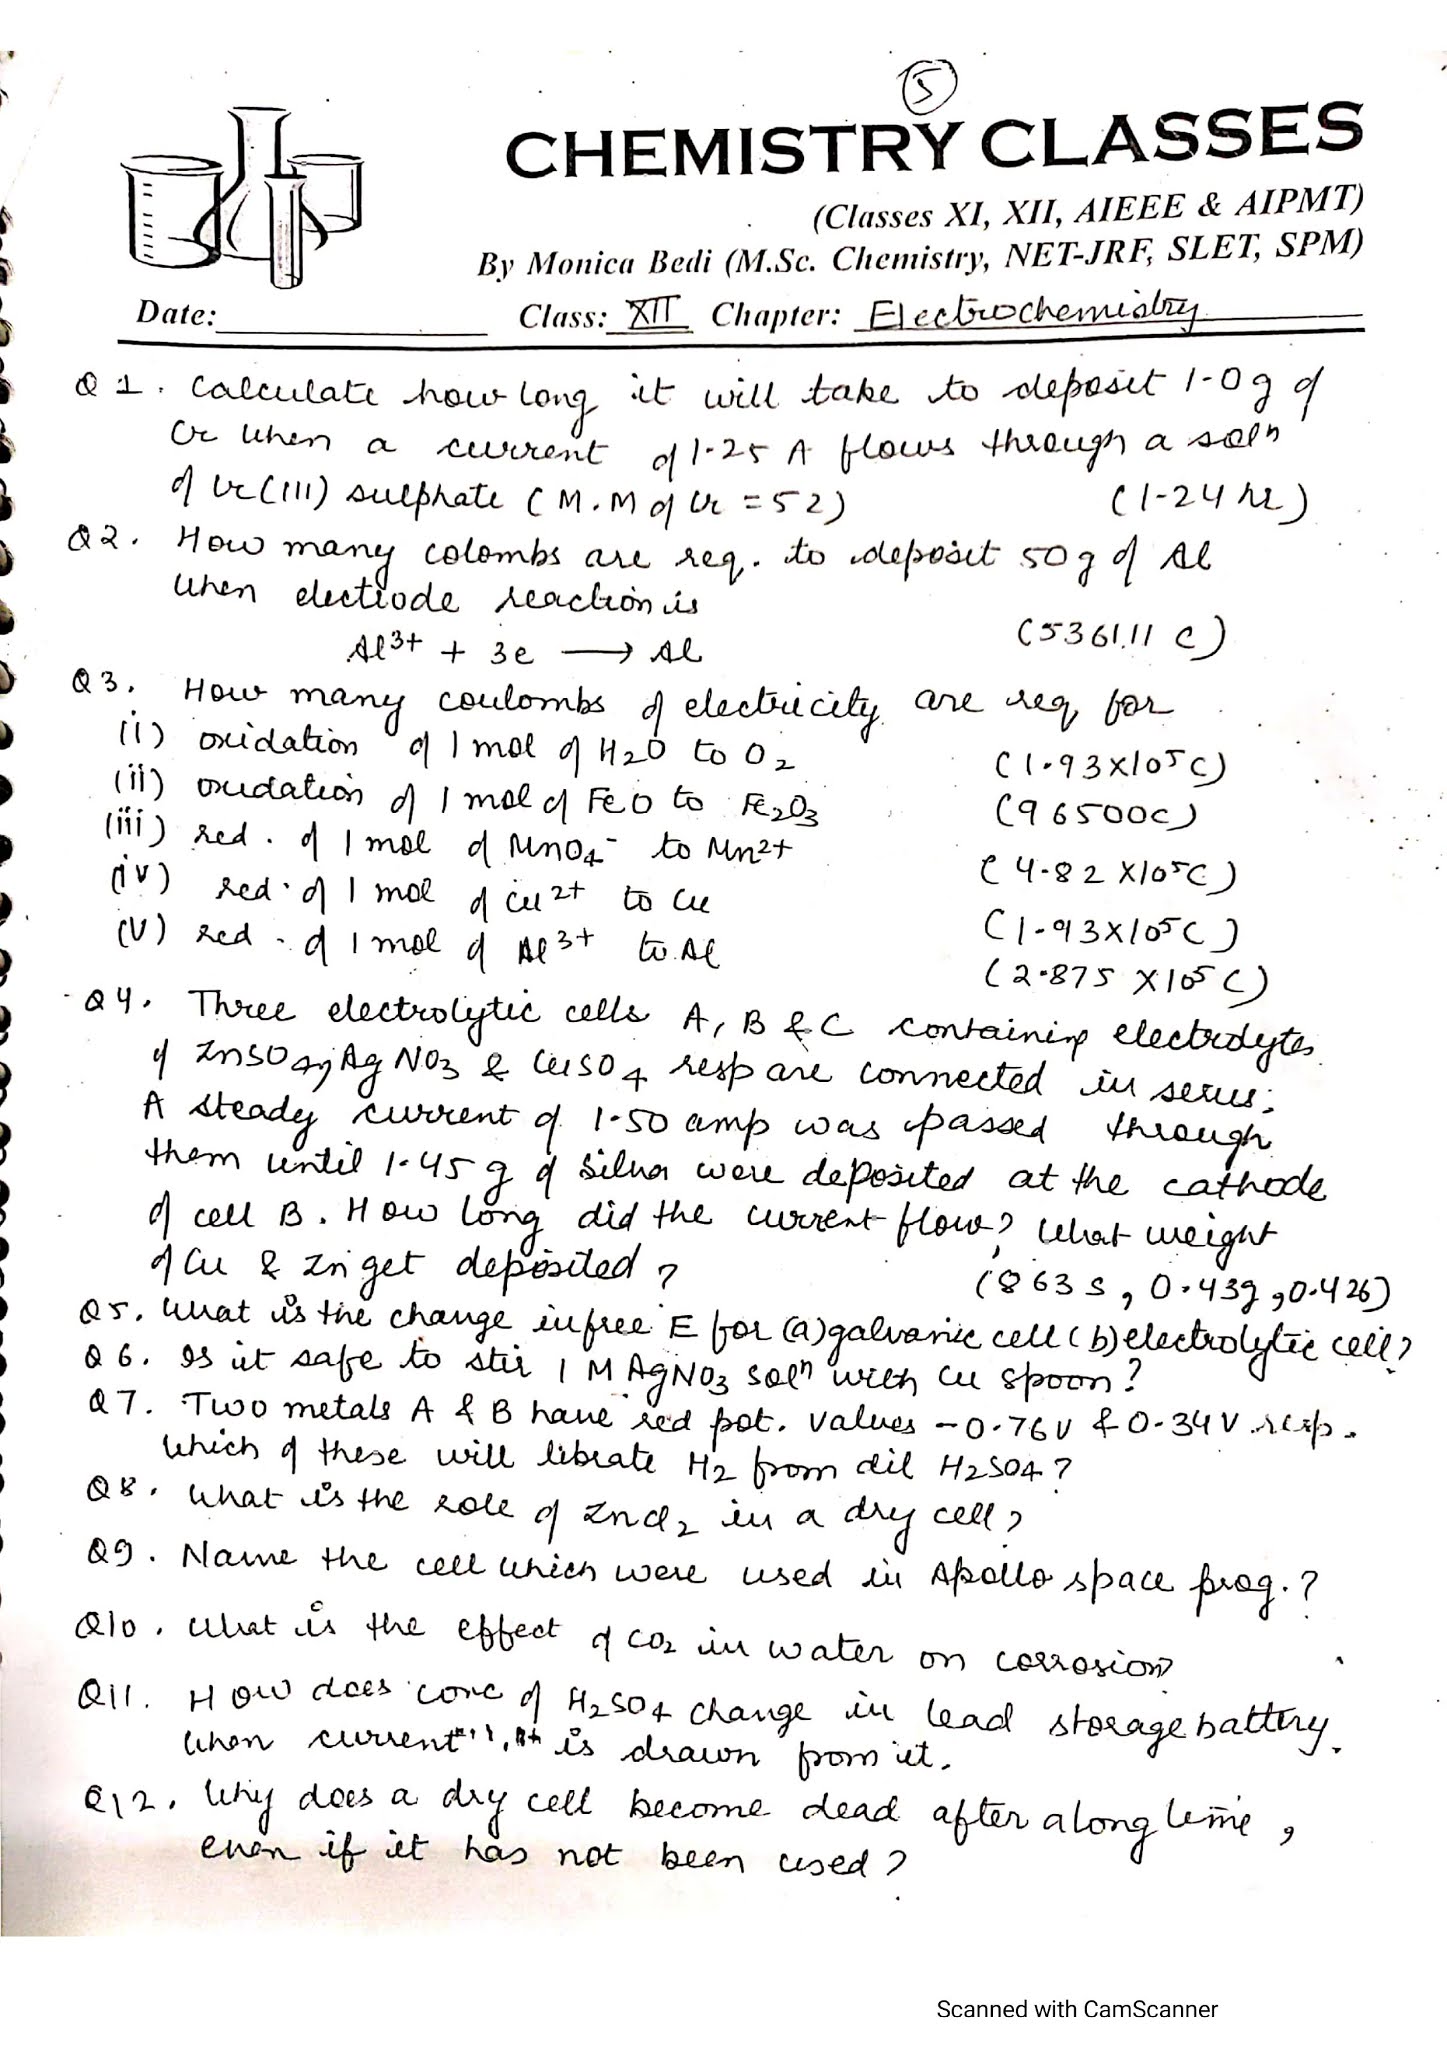 5
CHEMISTRY CLASSES
(Classes XI, XII, AIEEE & AIPMT)
By Monica Bedi (M.Sc. Chemistry, NET-JRF, SLET, SPM)
Date: Class: XII Chapter: Electrochemistry
Q 1. Calculate how long it will take to deposit 1.0g of
Cr when a current of 1.25 A flows through a solⁿ
of Cr(III) sulphate (M.M of Cr = 52) (1.24 hr)
Q2. How many colombs are req. to deposit 50g of Al
when electrode reaction is
Al³⁺ + 3e ⟶ Al (5361.11 C)
Q3. How many coulombs of electricity are req for
(i) oxidation of 1 mol of H2O to O₂ (1.93×10⁵C)
(ii) oxidation of 1 mol of FeO to Fe₂O₃ (96500C)
(iii) red. of 1 mol of MnO₄⁻ to Mn²⁺ (4.82×10⁵C)
(iv) red. of 1 mol of Cu²⁺ to Cu (1.93×10⁵C)
(v) red. of 1 mol of Al³⁺ to Al (2.875×10⁵C)
Q4. Three electrolytic cells A, B & C containing electrolytes
of ZnSO₄, AgNO₃ & CuSO₄ resp are connected in series.
A steady current of 1.50 amp was passed through
them until 1.45 g of silver were deposited at the cathode
of cell B. How long did the current flow? What weight
of Cu & Zn get deposited? (863 s, 0.43g, 0.426)
Q5. What is the change in free E for (a) galvanic cell (b) electrolytic cell?
Q6. Is it safe to stir 1 M AgNO₃ solⁿ with Cu spoon?
Q7. Two metals A & B have red pot. values -0.76V & 0.34V resp.
Which of these will librate H₂ from dil H₂SO₄?
Q8. What is the role of ZnCl₂ in a dry cell?
Q9. Name the cell which were used in Apollo space prog.?
Q10. What is the effect of CO₂ in water on corrosion?
Q11. How does conc of H₂SO₄ change in lead storage battery
when current is drawn from it.
Q12. Why does a dry cell become dead after a long time,
even if it has not been used?
Scanned with CamScanner